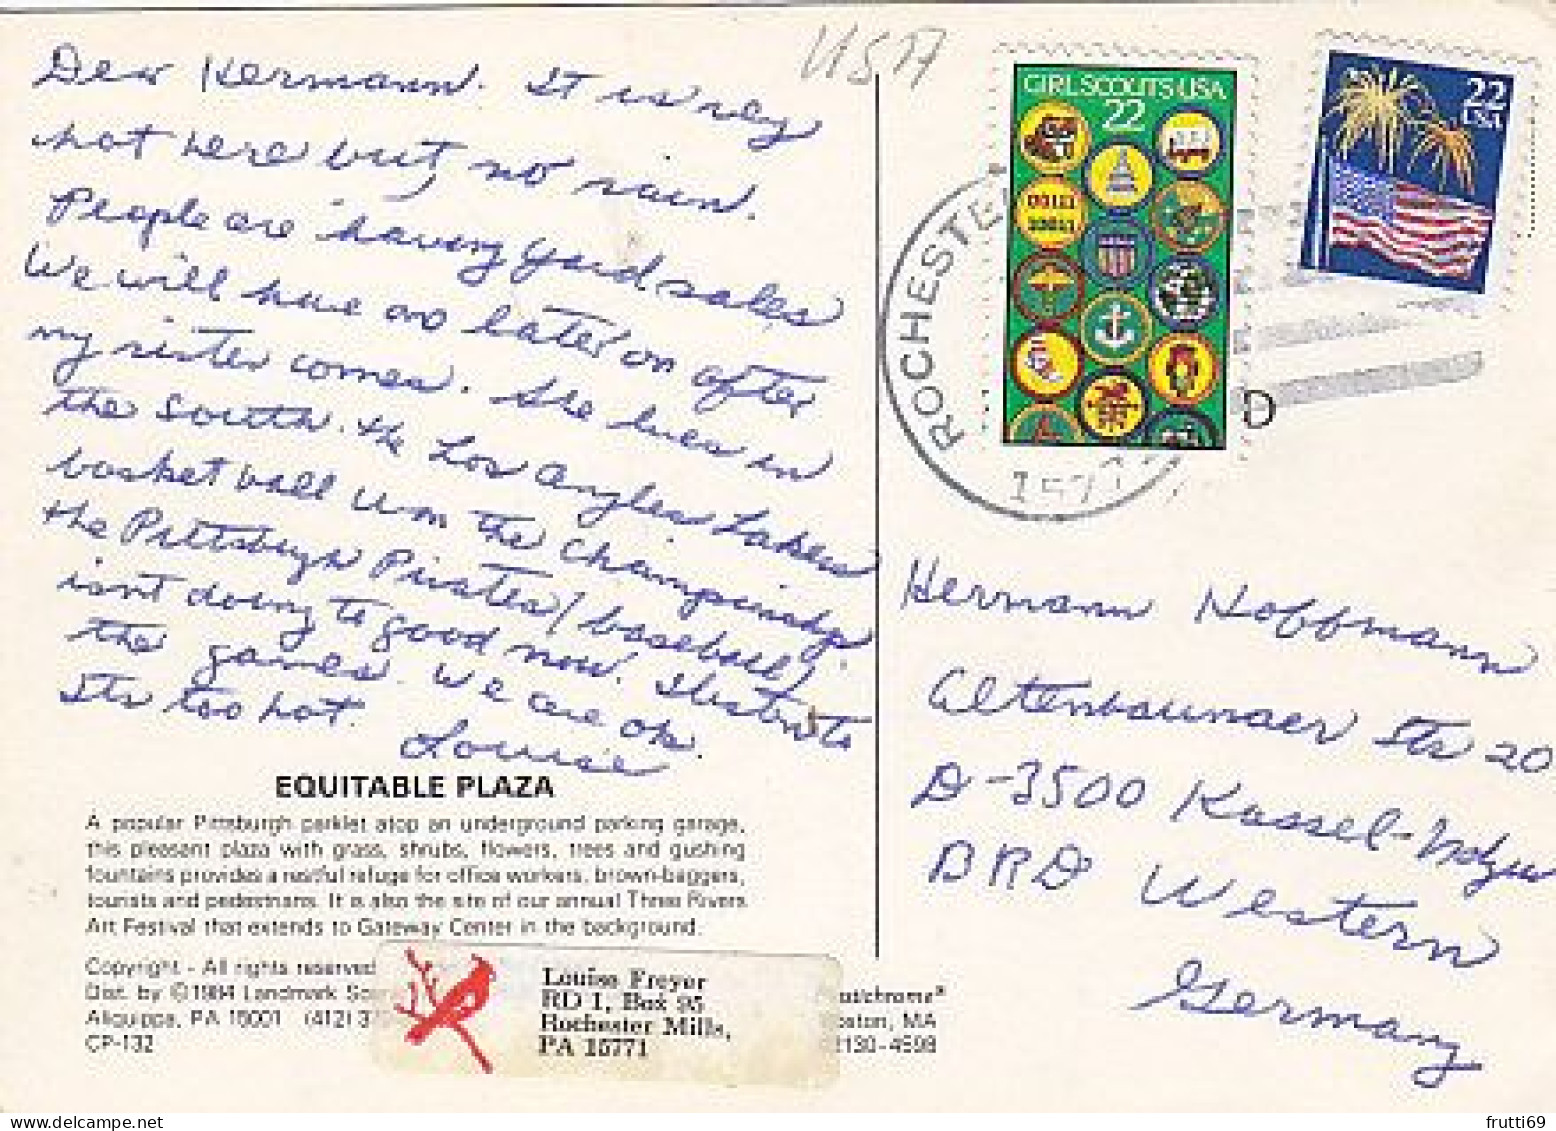 USA
Dear Hermann. It is very
hot here but no rain.
People are having yard sales
We will have no later on after
my sister comes. She lives in
the South. the Los Angles Lakers
basket ball won the Championship.
the Pittsburgh Pirates / baseball /
isnt doing to good now.
the games. We are ok.
Its too hot. Louise
EQUITABLE PLAZA
A popular Pittsburgh parklet atop an underground parking garage,
this pleasant plaza with grass, shrubs, flowers, trees and gushing
fountains provides a restful refuge for office workers, brown-baggers,
tourists and pedestrians. It is also the site of our annual Three Rivers
Art Festival that extends to Gateway Center in the background.
Copyright - All rights reserved
Dist. by ©1984 Landmark
Aliquippa, PA 15001 (412)
CP-132
Louise Freyer
RD 1, Box 95
Rochester Mills,
PA 15771
MA
2130-4598
GIRL SCOUTS·USA
22
22
USA
ROCHESTE
D
Hermann Hoffmann
Altenbaunaer Str 20
D-3500 Kassel-
BRD Western
Germany
frutti69